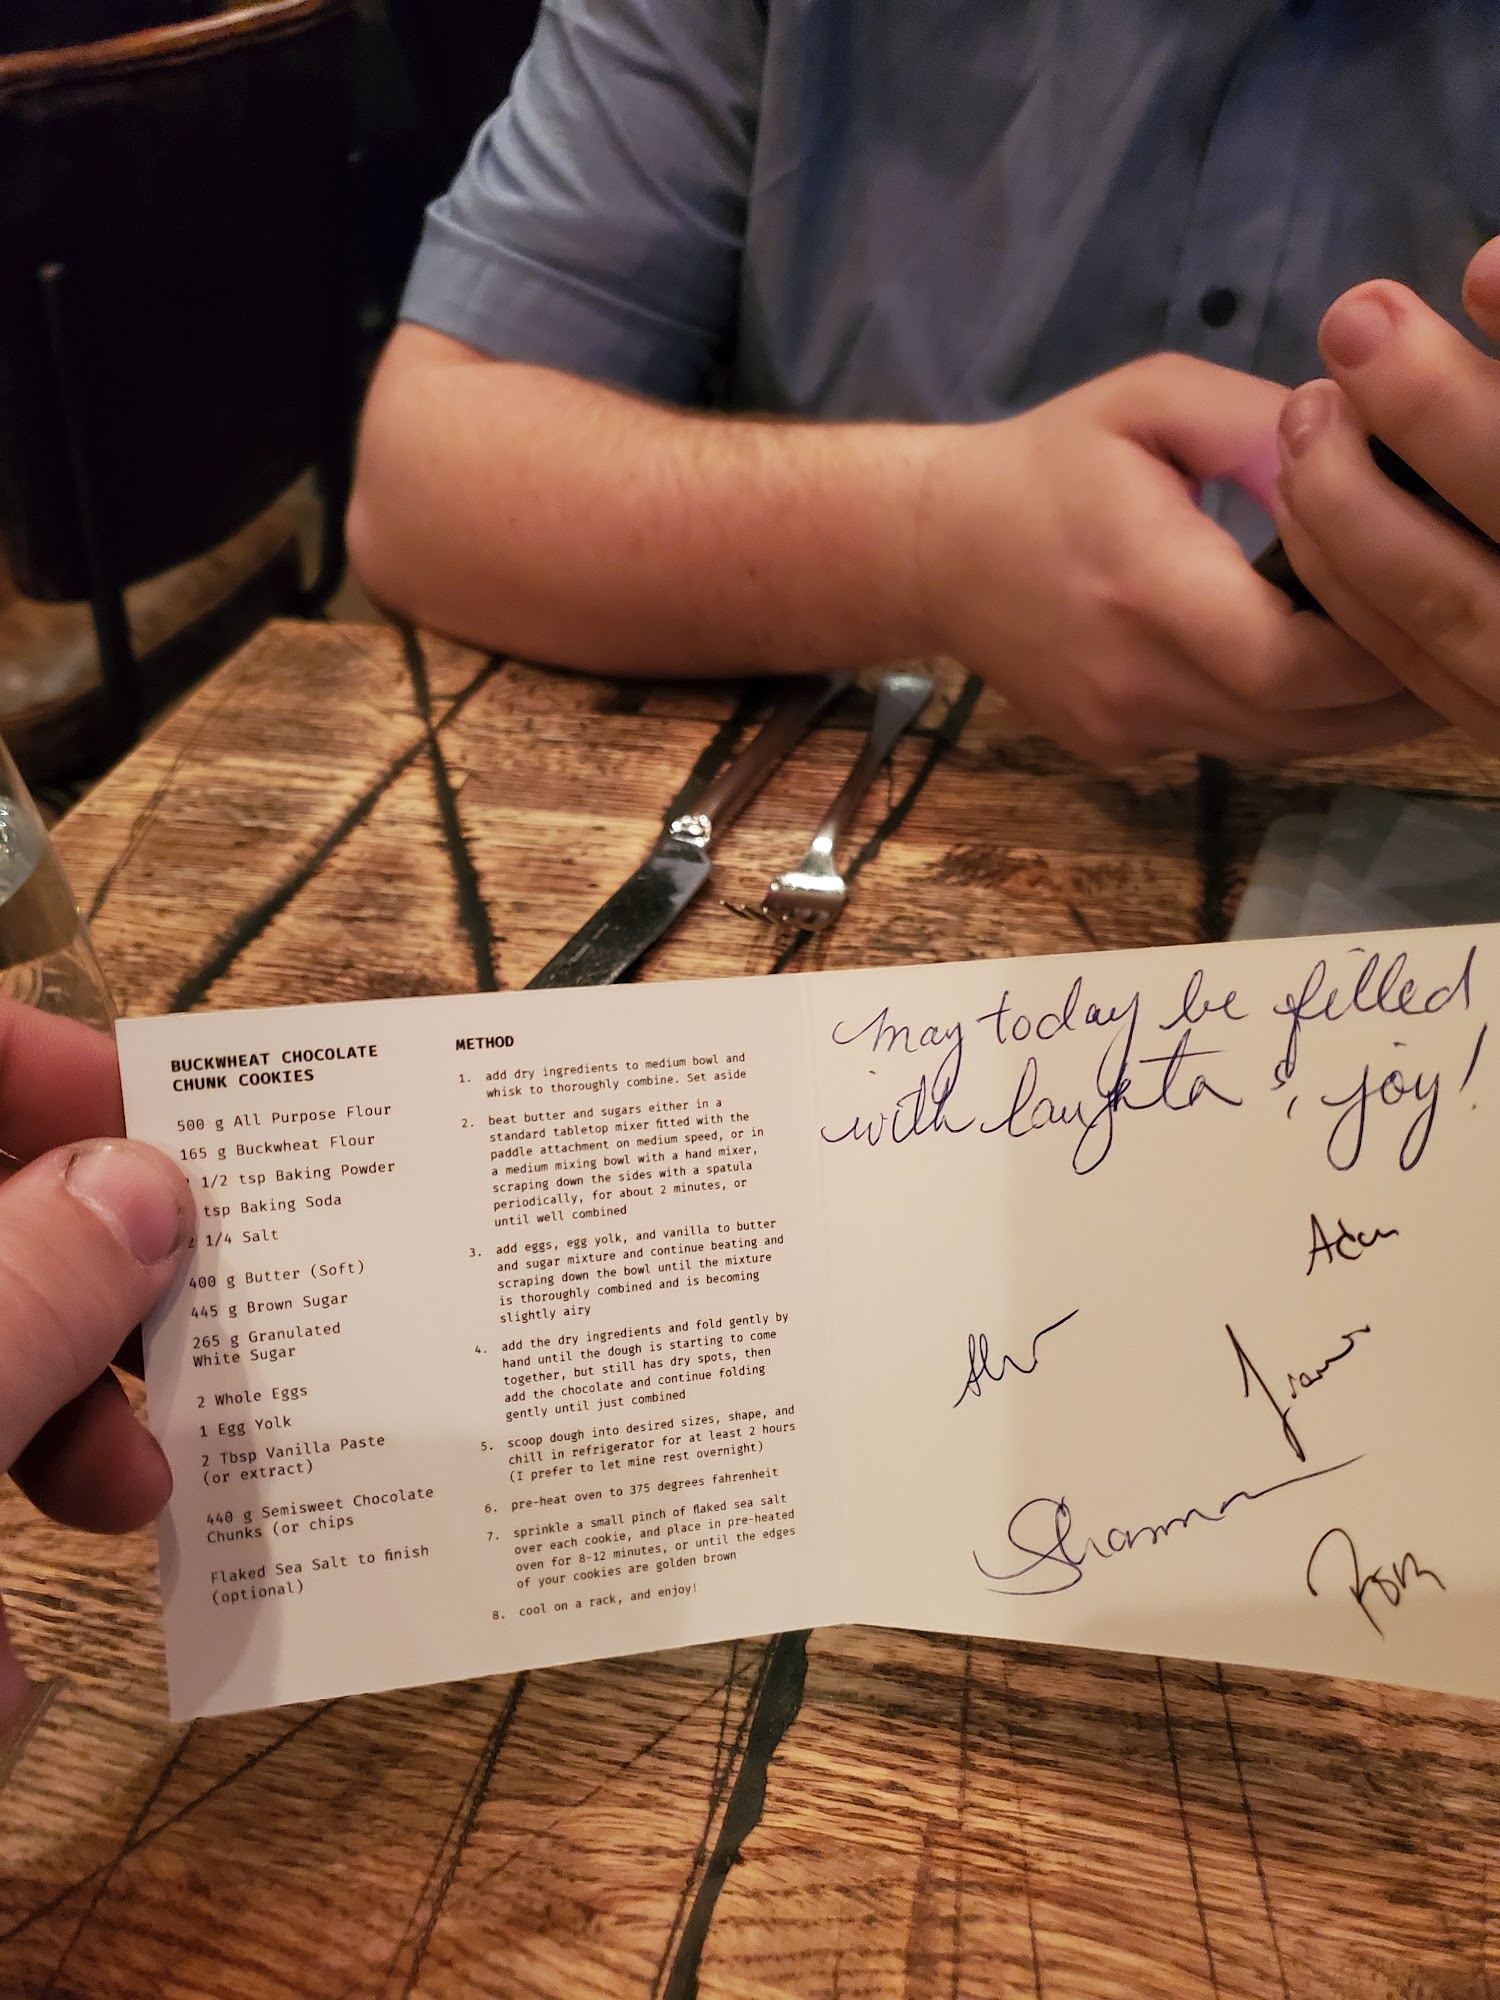 BUCKWHEAT CHOCOLATE
CHUNK COOKIES
500 g All Purpose Flour
165 g Buckwheat Flour
1/2 tsp Baking Powder
tsp Baking Soda
1/4 Salt
400 g Butter (Soft)
445 g Brown Sugar
265 g Granulated
White Sugar
2 Whole Eggs
1 Egg Yolk
2 Tbsp Vanilla Paste
(or extract)
440 g Semisweet Chocolate
Chunks (or chips
Flaked Sea Salt to finish
(optional)
METHOD
1. add dry ingredients to medium bowl and
whisk to thoroughly combine. Set aside
2. beat butter and sugars either in a
standard tabletop mixer fitted with the
paddle attachment on medium speed, or in
a medium mixing bowl with a hand mixer,
scraping down the sides with a spatula
periodically, for about 2 minutes, or
until well combined
3. add eggs, egg yolk, and vanilla to butter
and sugar mixture and continue beating and
scraping down the bowl until the mixture
is thoroughly combined and is becoming
slightly airy
4. add the dry ingredients and fold gently by
hand until the dough is starting to come
together, but still has dry spots, then
add the chocolate and continue folding
gently until just combined
5. scoop dough into desired sizes, shape, and
chill in refrigerator for at least 2 hours
(I prefer to let mine rest overnight)
6. pre-heat oven to 375 degrees fahrenheit
7. sprinkle a small pinch of flaked sea salt
over each cookie, and place in pre-heated
oven for 8-12 minutes, or until the edges
of your cookies are golden brown
8. cool on a rack, and enjoy!
may today be filled
with laughter & joy!
Adam
Shannon